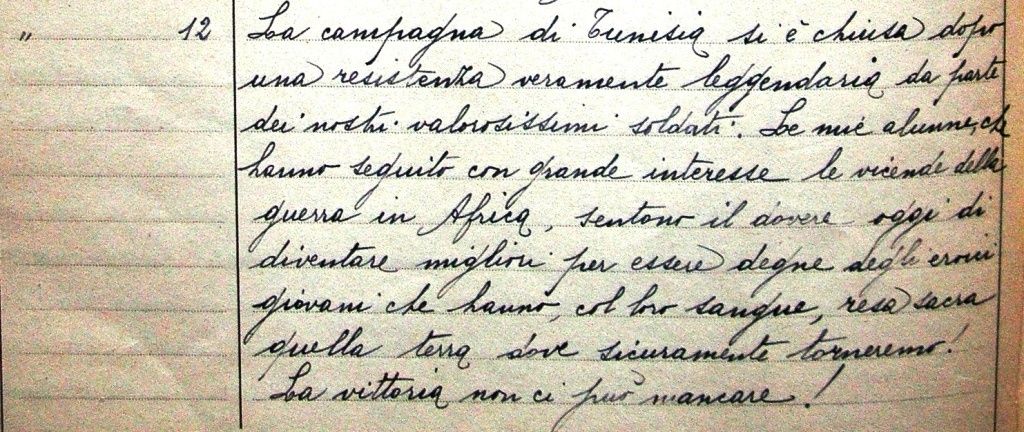 " 12 La campagna di Tunisia si è chiusa dopo
una resistenza veramente leggendaria da parte
dei nostri valorosissimi soldati. Le mie alunne, che
hanno seguito con grande interesse le vicende della
guerra in Africa, sentono il dovere oggi di
diventare migliori per essere degne degli eroici
giovani che hanno, col loro sangue, resa sacra
quella terra dove sicuramente torneremo!
La vittoria non ci può mancare!